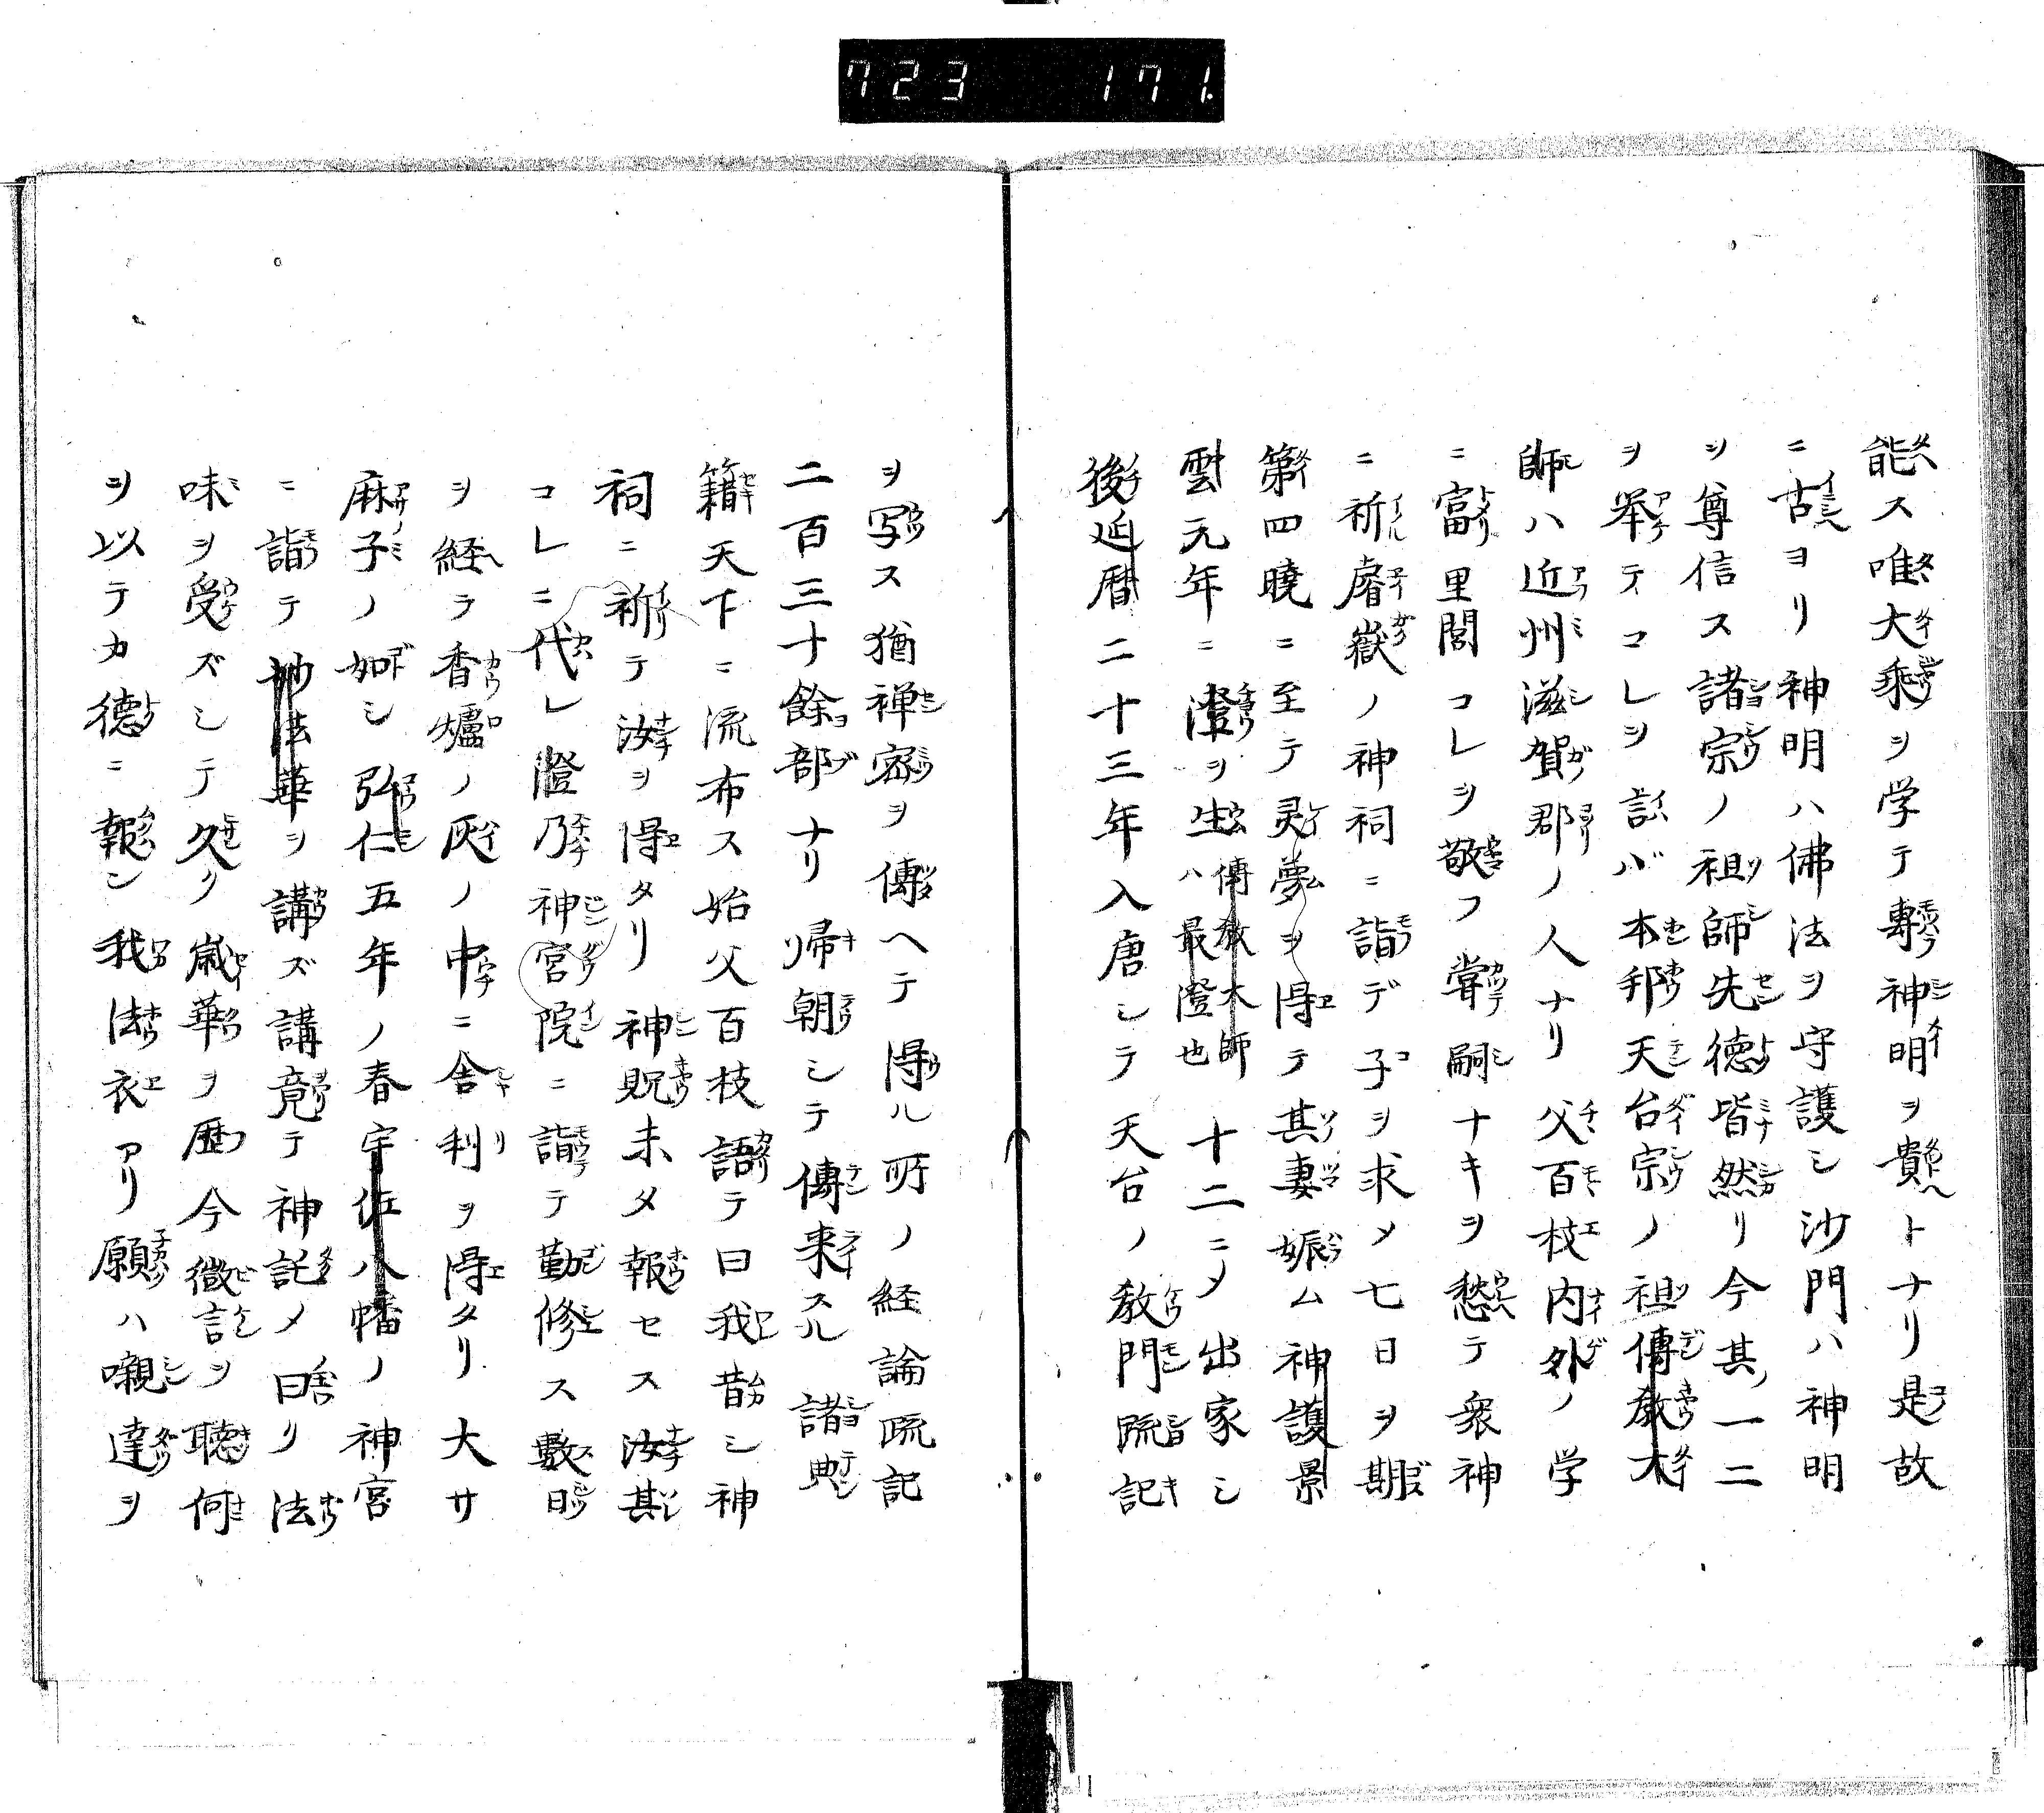 723 171
能ス唯大乘ヲ学テ専神明ヲ貴トナリ是故
ニ古ヨリ神明ハ佛法ヲ守護シ沙門ハ神明
ヲ尊信ス諸宗ノ祖師先徳皆然リ今其一二
ヲ挙テコレヲ言バ本邦天台宗ノ祖傳教大
師ハ近州滋賀郡ノ人ナリ父百枝内外ノ学
ニ富里閭コレヲ敬フ嘗嗣ナキヲ愁テ衆神
ニ祈睿嶽ノ神祠ニ詣デ子ヲ求メ七日ヲ期
第四曉ニ至テ灵夢ヲ得テ其妻娠ム神護景
雲元年ニ澄ヲ生傳教大師ハ最澄也十二ニメ出家シ
後延暦二十三年入唐シテ天台ノ教門疏記
ヲ写ス猶禅密ヲ傳ヘテ得ル所ノ経論疏記
二百三十餘部ナリ帰朝シテ傳来スル諸典
籍天下ニ流布ス始父百枝語テ曰我昔シ神
祠ニ祈テ汝ヲ得タリ神貺未タ報セス汝其
コレニ代レ澄乃神宮院ニ詣テ勤修ス數日
ヲ経テ香爐ノ灰ノ中ニ舎利ヲ得タリ大サ
麻子ノ如シ弘仁五年ノ春宇佐八幡ノ神宮
ニ詣テ妙法華ヲ講ズ講竟テ神託ノ曰リ法
味ヲ受ズシテ久ク歳華ヲ歴今微言ヲ聴何
ヲ以テカ徳ニ報ン我法衣アリ願ハ嚫達ヲ